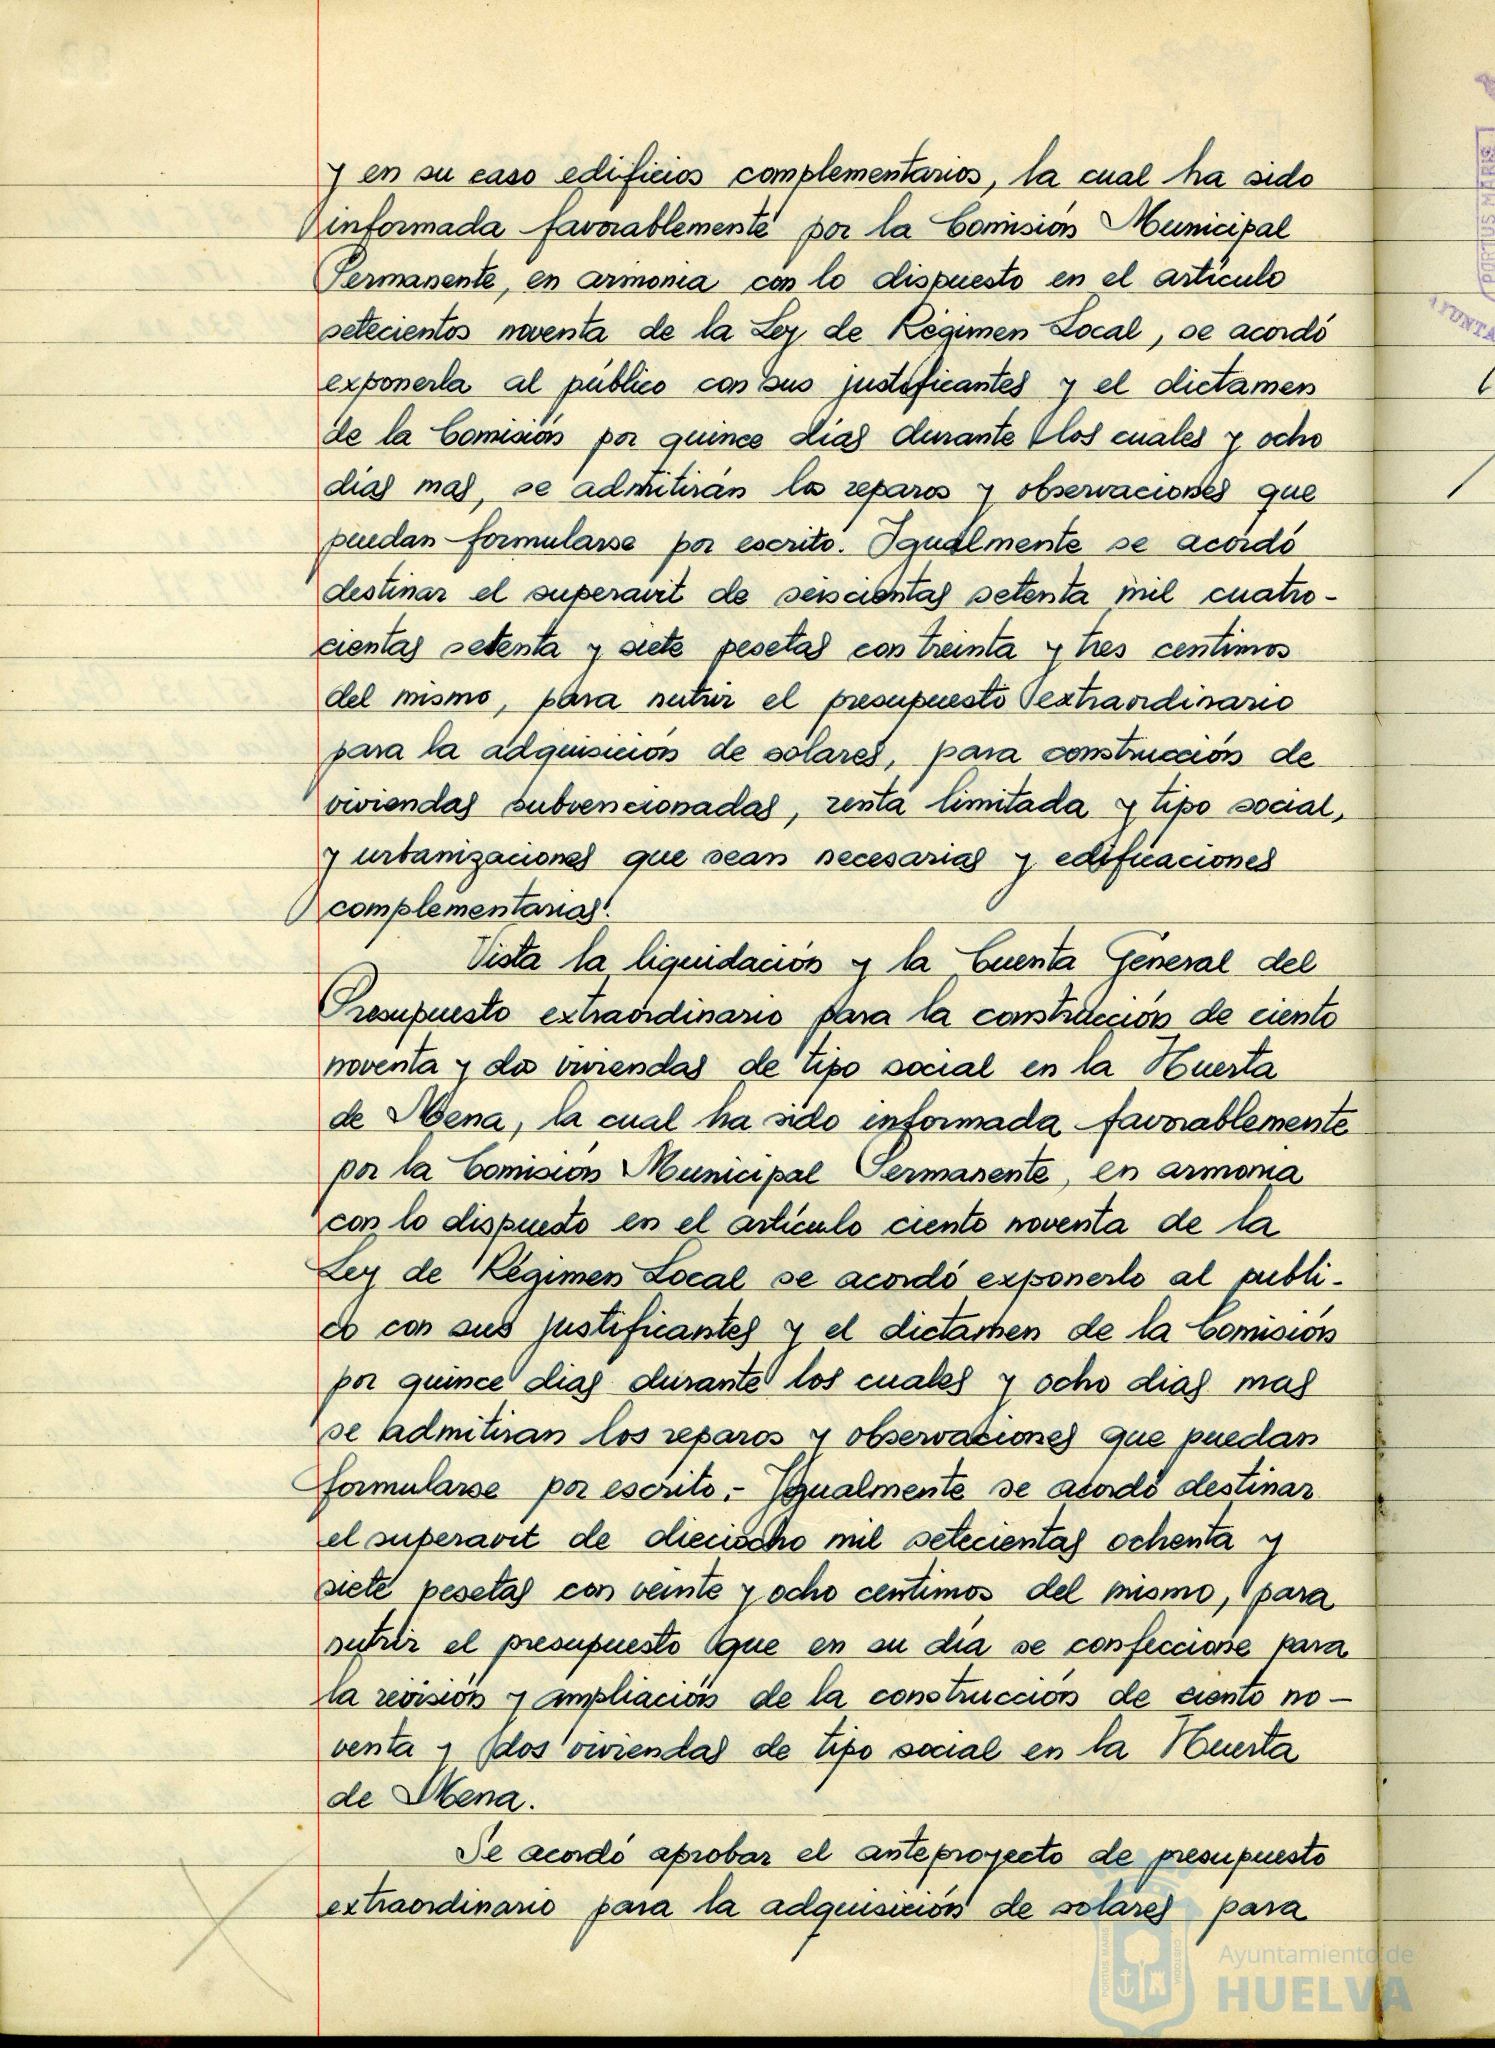 y en su caso edificios complementarios, la cual ha sido
informada favorablemente por la Comisión Municipal
Permanente, en armonia con lo dispuesto en el artículo
setecientos noventa de la Ley de Régimen Local, se acordó
exponerla al público con sus justificantes y el dictamen
de la Comisión por quince días durante los cuales y ocho
días mas, se admitirán los reparos y observaciones que
puedan formularse por escrito. Igualmente se acordó
destinar el superavit de seiscientas setenta mil cuatro-
cientas setenta y siete pesetas con treinta y tres centimos
del mismo, para nutrir el presupuesto extraordinario
para la adquisición de solares, para construcción de
viviendas subvencionadas, renta limitada y tipo social,
y urbanizaciones que sean necesarias y edificaciones
complementarias.
Vista la liquidación y la Cuenta General del
Presupuesto extraordinario para la construcción de ciento
noventa y dos viviendas de tipo social en la Huerta
de Mena, la cual ha sido informada favorablemente
por la Comisión Municipal Permanente, en armonia
con lo dispuesto en el artículo ciento noventa de la
Ley de Régimen Local se acordó exponerlo al publi-
co con sus justificantes y el dictamen de la Comisión
por quince dias durante los cuales y ocho dias mas
se admitiran los reparos y observaciones que puedan
formularse por escrito.- Igualmente se acordó destinar
el superavit de dieciocho mil setecientas ochenta y
siete pesetas con veinte y ocho centimos del mismo, para
nutrir el presupuesto que en su día se confeccione para
la revisión y ampliación de la construcción de ciento no-
venta y dos viviendas de tipo social en la Huerta
de Mena.
Se acordó aprobar el anteproyecto de presupuesto
extraordinario para la adquisición de solares para
Ayuntamiento de
HUELVA
PORTUS MARIS
CUSTODIA
PORTUS MARIS
AYUNTA